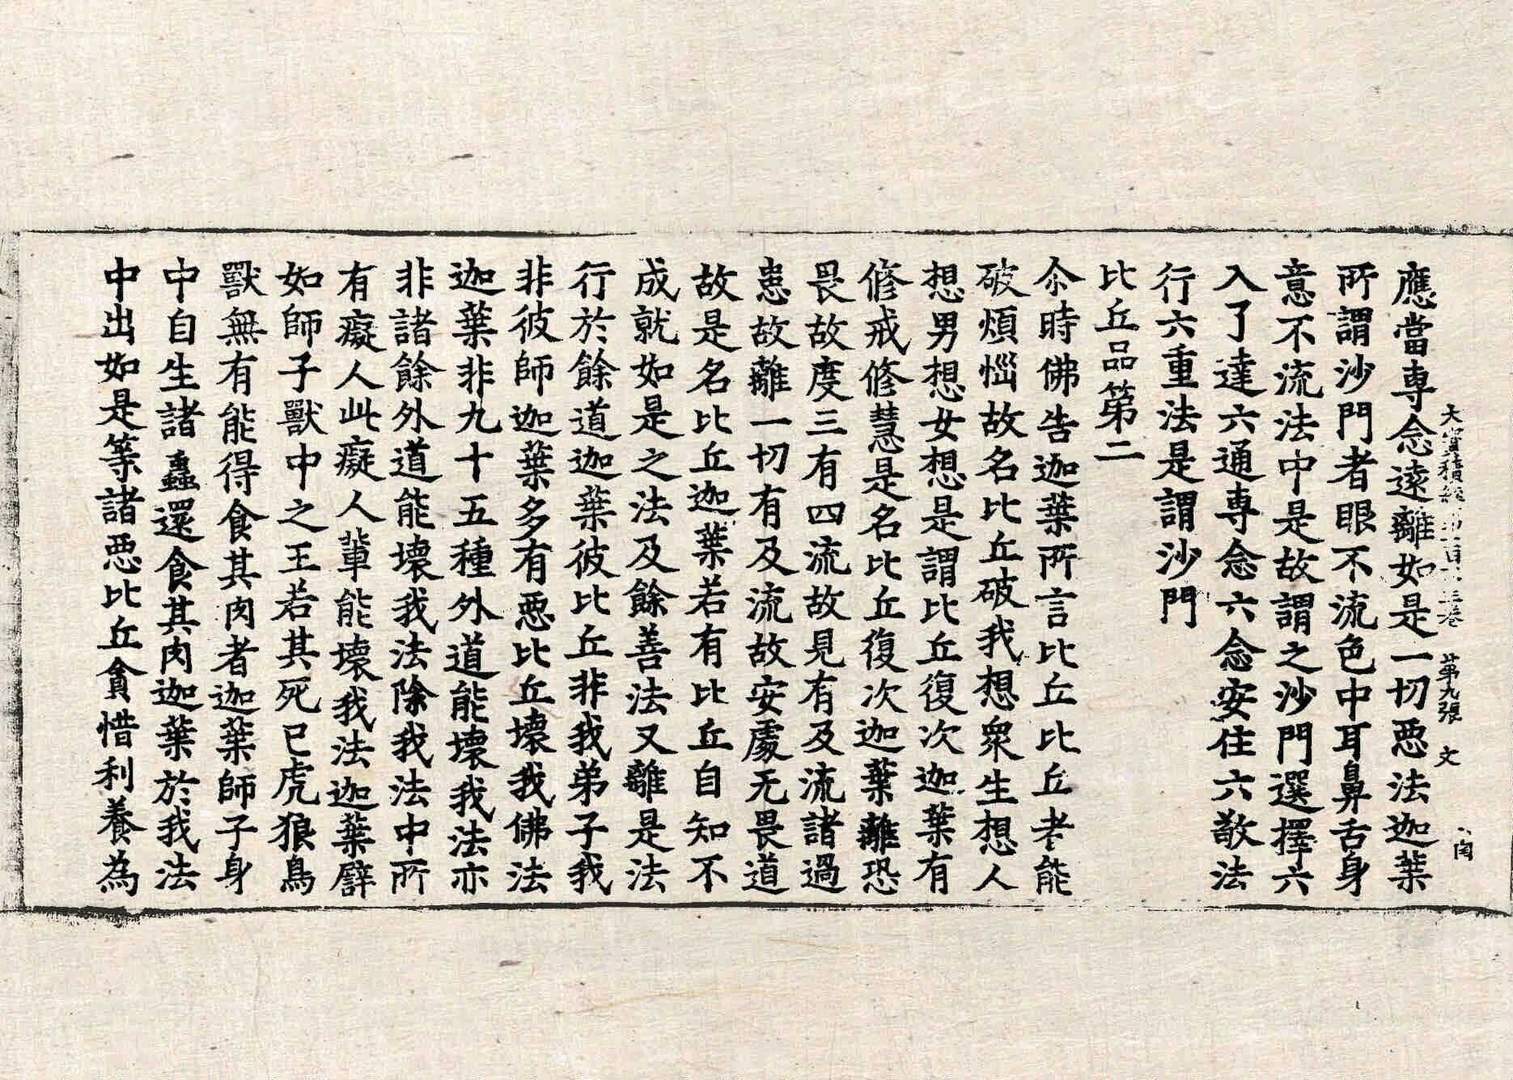 大寳積經第一百十三卷 第九張 文
應當専念遠離如是一切惡法迦葉
所謂沙門者眼不流色中耳鼻舌身
意不流法中是故謂之沙門選擇六
入了達六通専念六念安住六敬法
行六重法是謂沙門
比丘品第二
尒時佛告迦葉所言比丘比丘者能
破煩惱故名比丘破我想衆生想人
想男想女想是謂比丘復次迦葉有
修戒修慧是名比丘復次迦葉離恐
畏故度三有四流故見有及流諸過
患故離一切有及流故安處无畏道
故是名比丘迦葉若有比丘自知不
成就如是之法及餘善法又離是法
行於餘道迦葉彼比丘非我弟子我
非彼師迦葉多有惡比丘壞我佛法
迦葉非九十五種外道能壞我法亦
非諸餘外道能壞我法除我法中所
有癡人此癡人輩能壞我法迦葉譬
如師子獸中之王若其死已虎狼鳥
獸無有能得食其肉者迦葉師子身
中自生諸蟲還食其肉迦葉於我法
中出如是等諸惡比丘貪惜利養為